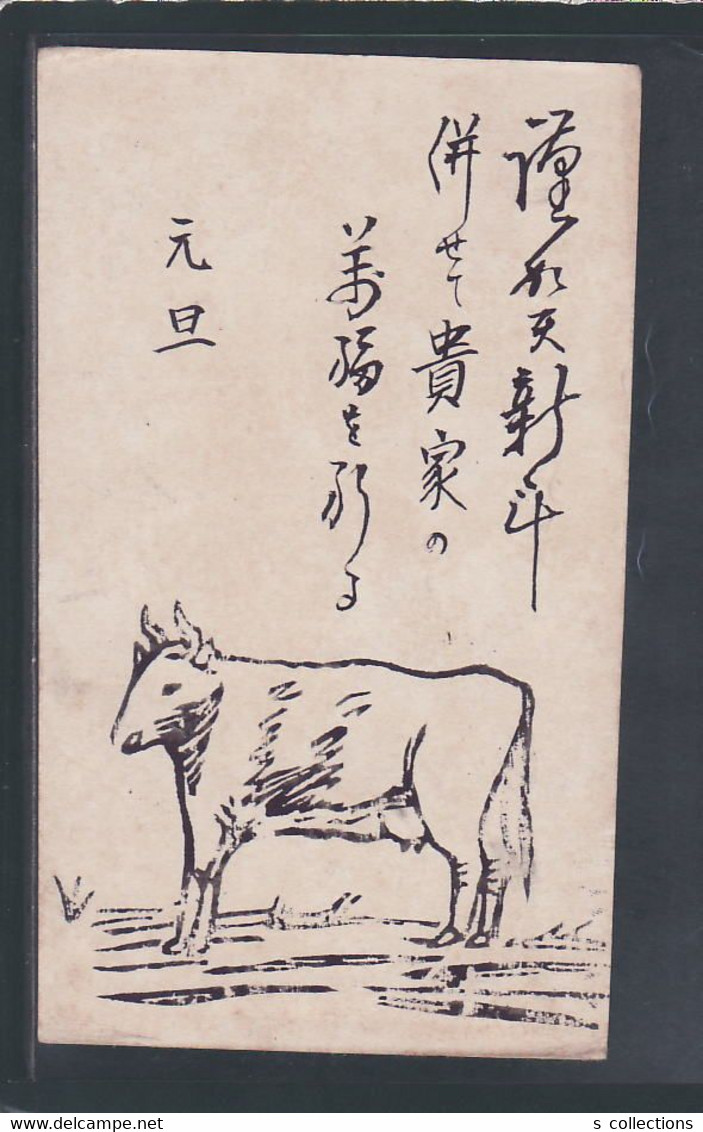 謹賀新年
併せて貴家の
萬福を祈る
元旦
s collections